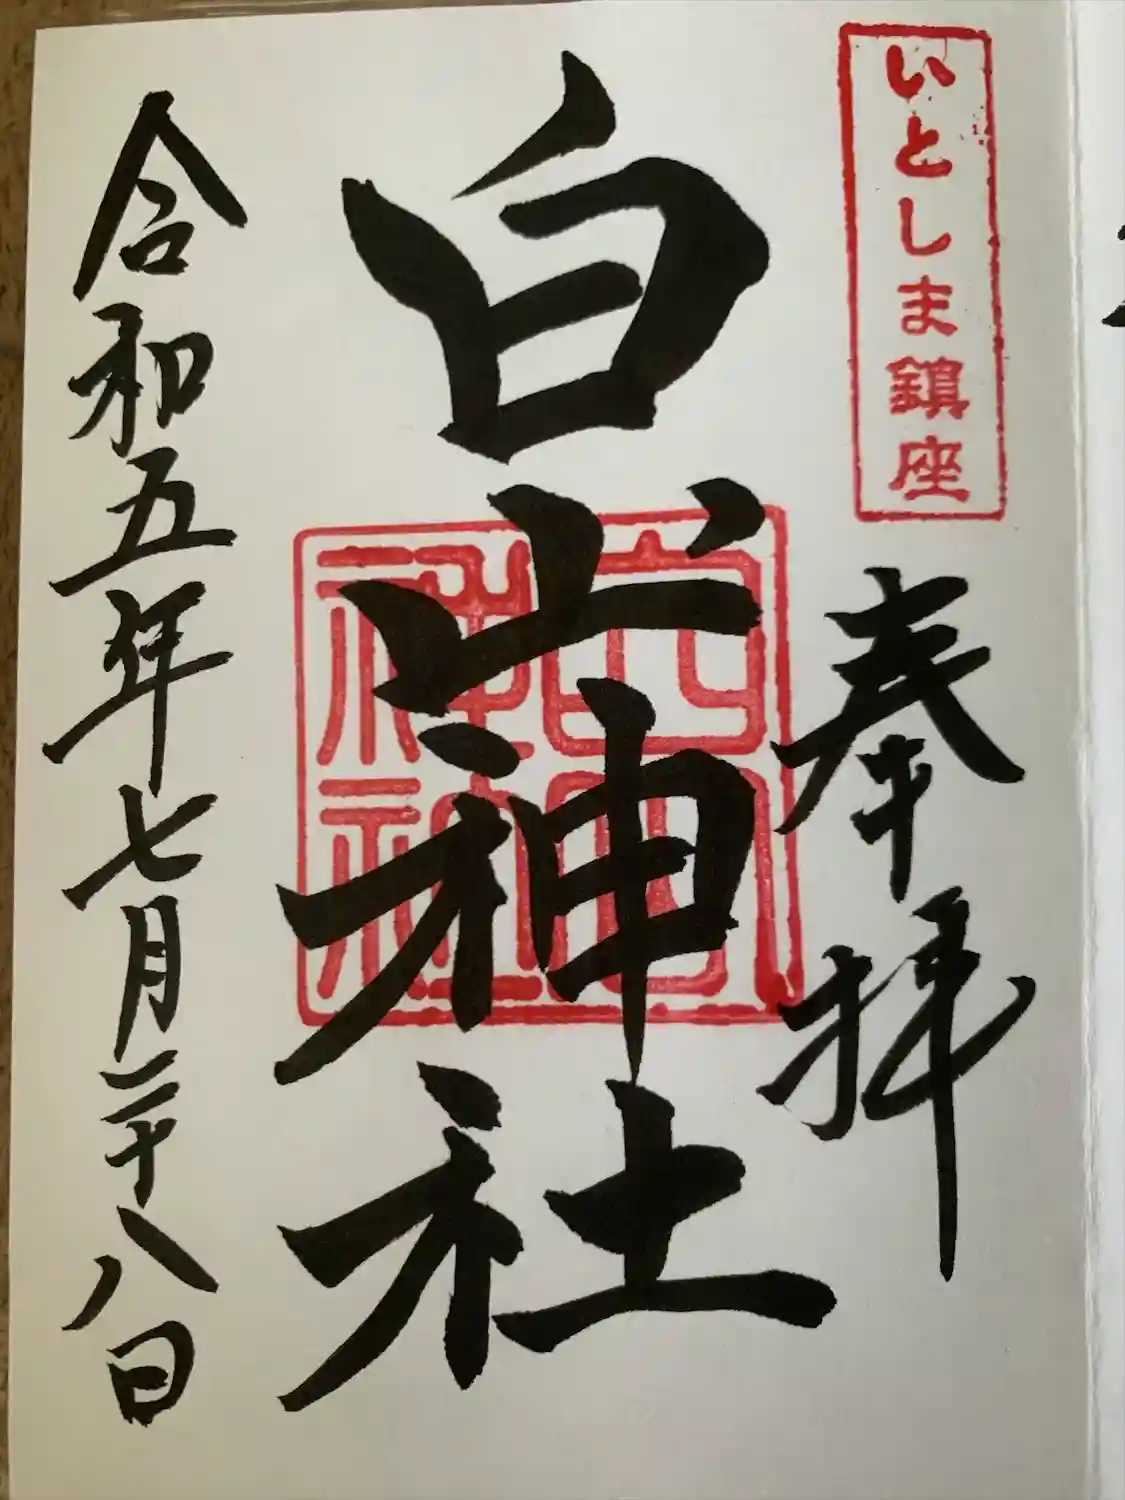 いとしま鎮座
奉拝
白山神社
令和五年七月二十八日